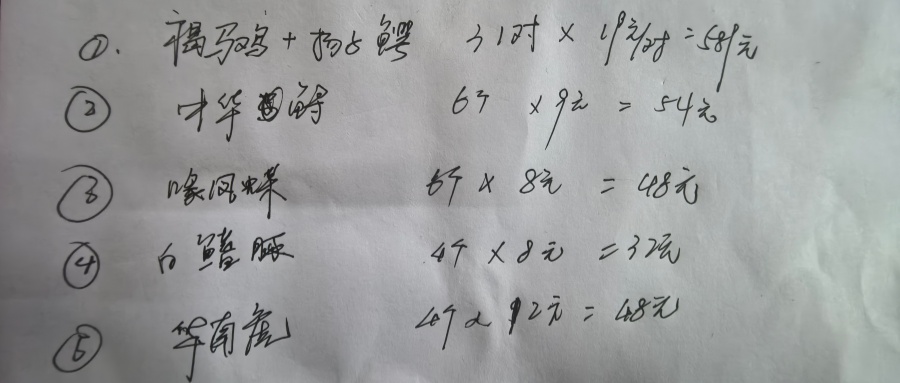 ①. 褐马鸡+扬子鳄 31对×19元/对=589元
② 中华鲟 6个×9元=54元
③ 喙凤蝶 6个×8元=48元
④ 白鱀豚 4个×8元=32元
⑤ 华南虎 4个×12元=48元